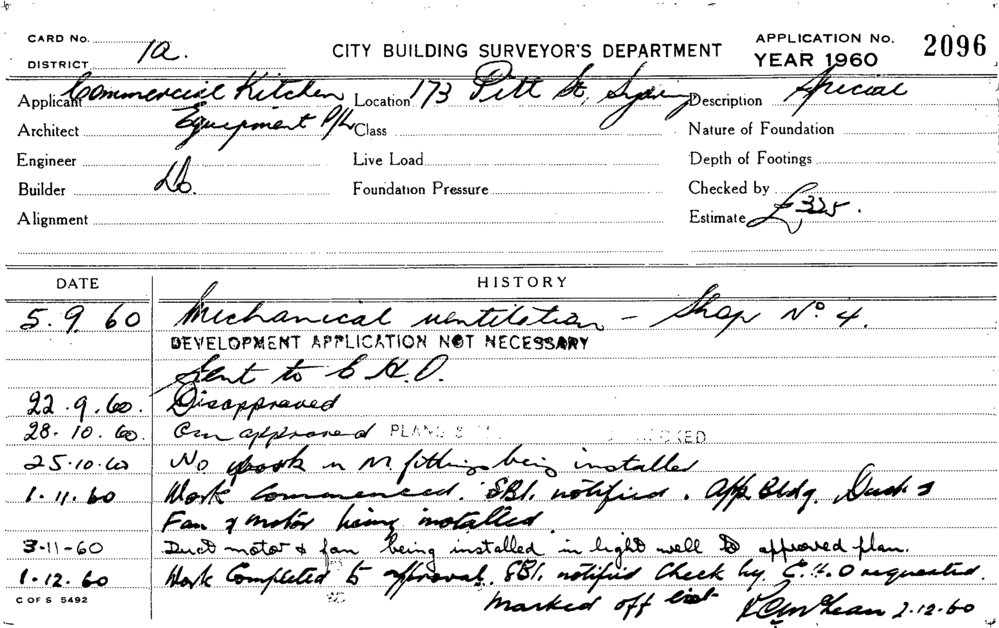 CARD No. 1a.
DISTRICT
CITY BUILDING SURVEYOR'S DEPARTMENT
APPLICATION No. 2096
YEAR 1960
Applicant Commercial Kitchen Location 173 Pitt St, Sydney Description Special
Architect Equipment P/L Class Nature of Foundation
Engineer Live Load Depth of Footings
Builder Do. Foundation Pressure Checked by
Alignment Estimate £325.
DATE HISTORY
5.9.60 Mechanical ventilation - Shop No 4.
DEVELOPMENT APPLICATION NOT NECESSARY
Sent to C.H.O.
22.9.60. Disapproved
28.10.60. approved PLANS
25.10.60 No work in fittings being installed
1.11.60 Work Commenced. SBI. notified. App. Bldg. Duct &
Fan & motor being installed.
3-11-60 Duct motor & fan being installed in light well to approved plan.
1.12.60 Work Completed to approval. SBI. notified Check by C.H.O requested.
C OF S 5492
Marked off list 2-12-60